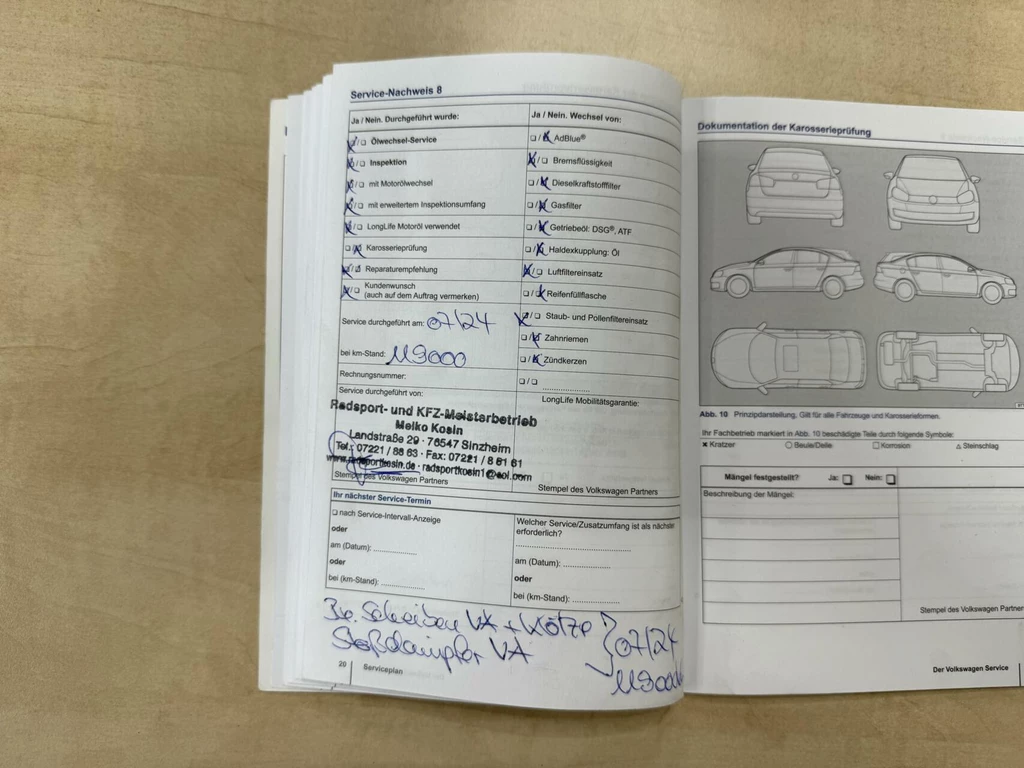 Service-Nachweis 8
Ja / Nein. Durchgeführt wurde:
Ölwechsel-Service
Inspektion
mit Motorölwechsel
mit erweitertem Inspektionsumfang
LongLife Motoröl verwendet
Karosserieprüfung
Reparaturempfehlung
Kundenwunsch
(auch auf dem Auftrag vermerken)
Service durchgeführt am: 07/24
bei km-Stand: 119000
Rechnungsnummer:
Service durchgeführt von:
Radsport- und KFZ-Meisterbetrieb
Meiko Kosin
Landstraße 29 · 76547 Sinzheim
Tel.: 07221 / 88 63 · Fax: 07221 / 8 61 61
www.radsportkosin.de · radsportkosin1@aol.com
Stempel des Volkswagen Partners
Ja / Nein. Wechsel von:
AdBlue®
Bremsflüssigkeit
Dieselkraftstofffilter
Gasfilter
Getriebeöl: DSG®, ATF
Haldexkupplung: Öl
Luftfiltereinsatz
Reifenfüllflasche
Staub- und Pollenfiltereinsatz
Zahnriemen
Zündkerzen
LongLife Mobilitätsgarantie:
Stempel des Volkswagen Partners
Ihr nächster Service-Termin
nach Service-Intervall-Anzeige
oder
am (Datum): ..............
oder
bei (km-Stand): ..............
Welcher Service/Zusatzumfang ist als nächster
erforderlich?
am (Datum): ..............
oder
bei (km-Stand): ..............
Scheiben VA + Klötze
Stoßdämpfer VA
07/24
119000
20 Serviceplan
Dokumentation der Karosserieprüfung
Abb. 10 Prinzipdarstellung. Gilt für alle Fahrzeuge und Karosserieformen.
Ihr Fachbetrieb markiert in Abb. 10 beschädigte Teile durch folgende Symbole:
Kratzer Beule/Delle Korrosion Steinschlag
Mängel festgestellt? Ja: Nein:
Beschreibung der Mängel:
Stempel des Volkswagen Partner
Der Volkswagen Service